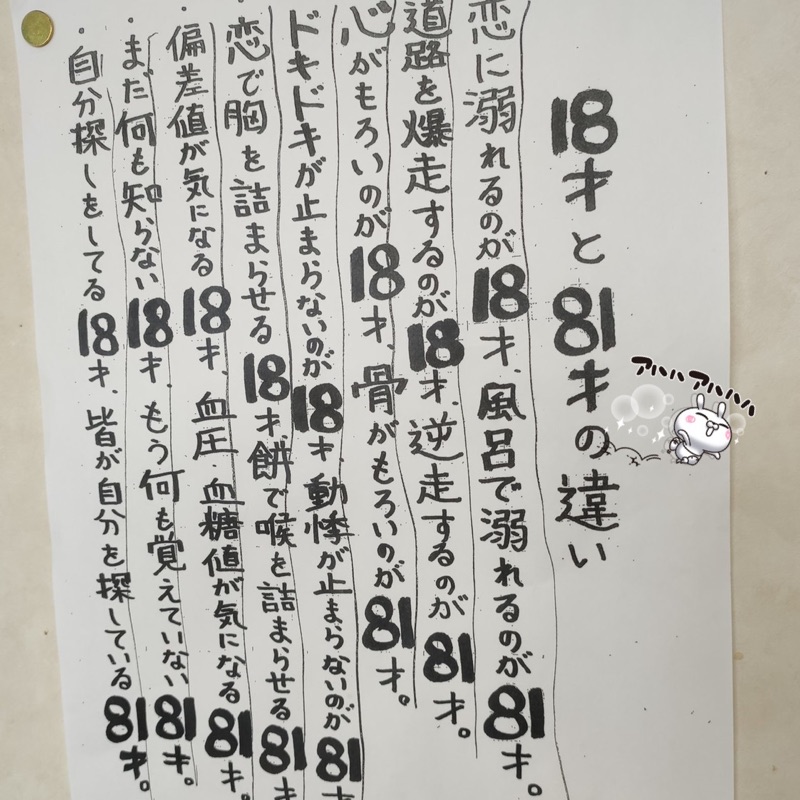 18才と81才の違い
アハハアハハハ
恋に溺れるのが18才、風呂で溺れるのが81才。
道路を爆走するのが18才、逆走するのが81才。
心がもろいのが18才、骨がもろいのが81才。
ドキドキが止まらないのが18才 動悸が止まらないのが81才
・恋で胸を詰まらせる18才 餅で喉を詰まらせる81才
・偏差値が気になる18才、血圧・血糖値が気になる81才。
・まだ何も知らない18才、もう何も覚えていない81才。
・自分探しをしてる18才、皆が自分を探している81才。